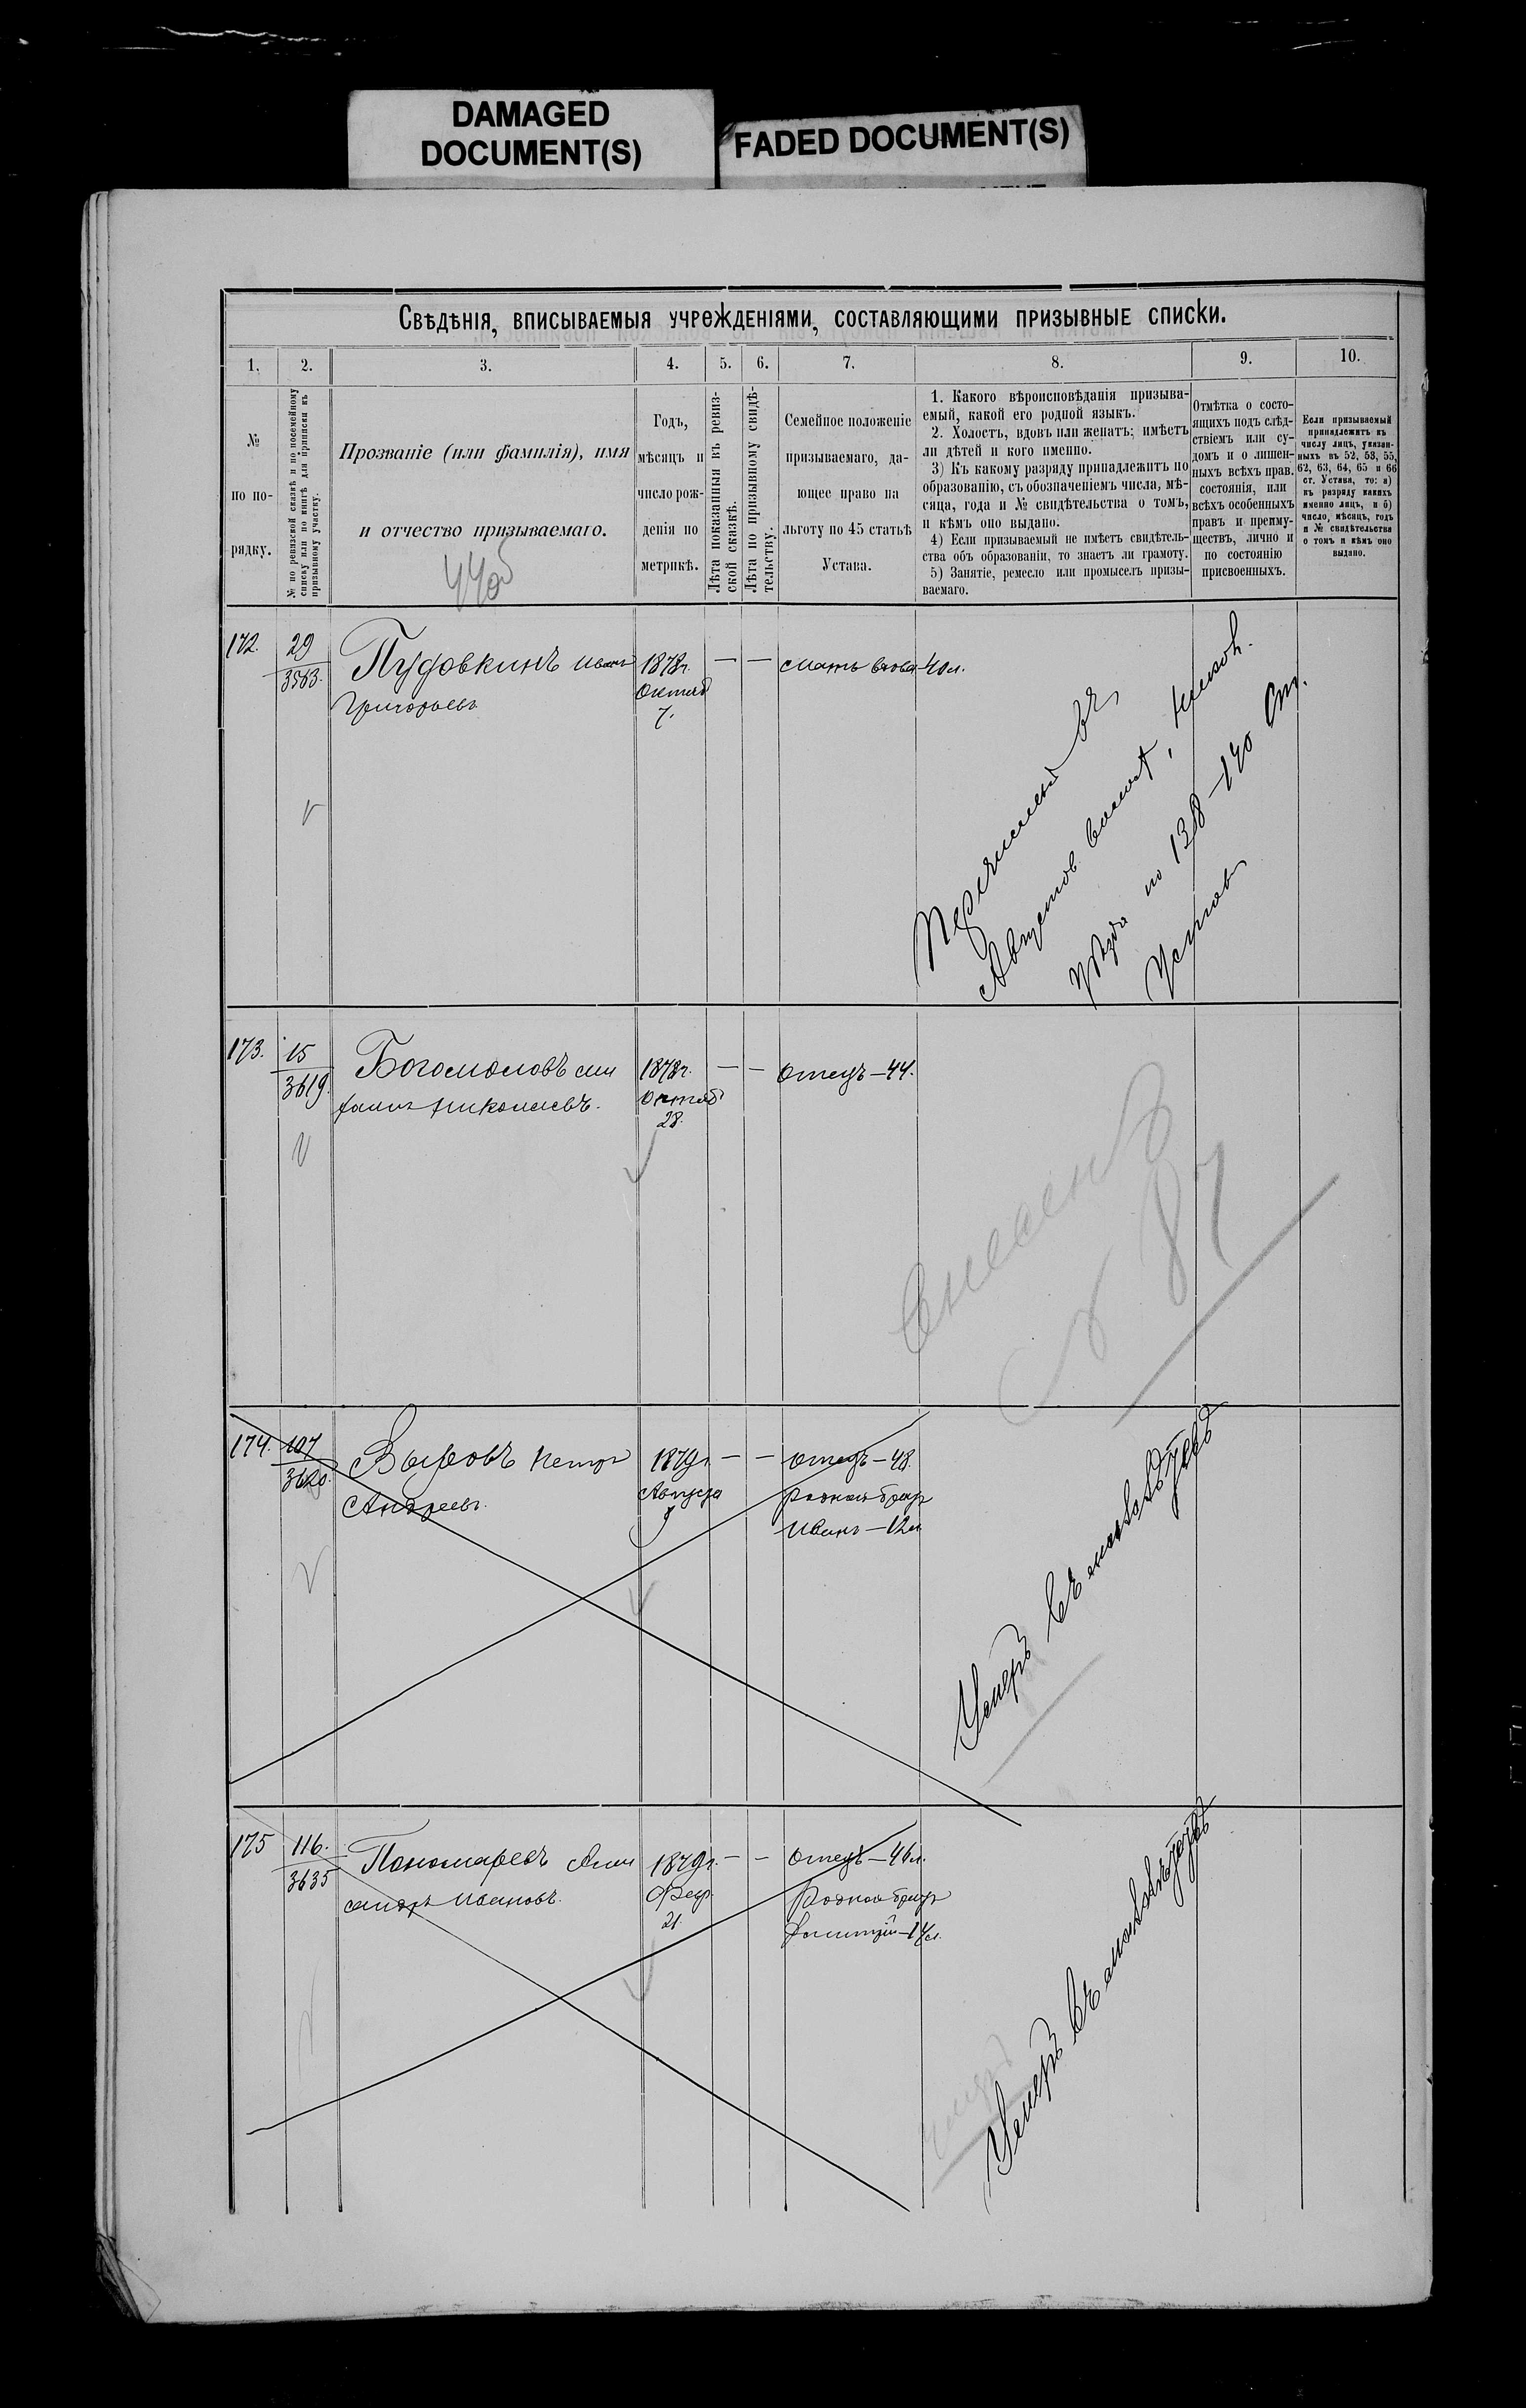 DAMAGED
DOCUMENT(S)
FADED DOCUMENT(S)
Свѣдѣнія, вписываемыя учрежденіями, составляющими призывные списки.
1. 2. 3. 4. 5. 6. 7. 8. 9. 10.
№
по по-
рядку.
№ по ревизской сказкѣ и по посемейному
списку или по книгѣ для приписки къ
призывному участку.
Прозваніе (или фамилія), имя
и отчество призываемаго.
Годъ,
мѣсяцъ и
число рож-
денія по
метрикѣ.
Лѣта показанныя въ ревиз-
ской сказкѣ.
Лѣта по призывному свидѣ-
тельству.
Семейное положеніе
призываемаго, да-
ющее право на
льготу по 45 статьѣ
Устава.
1. Какого вѣроисповѣданія призыва-
емый, какой его родной языкъ.
2. Холостъ, вдовъ или женатъ; имѣетъ
ли дѣтей и кого именно.
3) Къ какому разряду принадлежитъ по
образованію, съ обозначеніемъ числа, мѣ-
сяца, года и № свидѣтельства о томъ,
и кѣмъ оно выдано.
4) Если призываемый не имѣетъ свидѣтель-
ства объ образованіи, то знаетъ ли грамоту.
5) Занятіе, ремесло или промыселъ призы-
ваемаго.
Отмѣтка о состо-
ящихъ подъ слѣд-
ствіемъ или су-
домъ и о лишен-
ныхъ всѣхъ прав.
состоянія, или
всѣхъ особенныхъ
правъ и преиму-
ществъ, лично и
по состоянію
присвоенныхъ.
Если призываемый
принадлежитъ къ
числу лицъ, указан-
ныхъ въ 52, 53, 55,
62, 63, 64, 65 и 66
ст. Устава, то: а)
къ разряду какихъ
именно лицъ, и б)
число, мѣсяцъ, годъ
и № свидѣтельства
о томъ и кѣмъ оно
выдано.
172.
29
3563.
Пудовкинъ Иванъ
Григорьевъ
1878г.
Октяб
7.
— —
Мать вдова—40л.
Перечислен въ
Августов волост,
уѣзда по 138—140 ст.
Устава
173.
15
3619.
Богомоловъ Ми
хаилъ Николаевъ.
1878г.
Октяб
28.
— —
Отецъ—44.
Внесенъ
№ 87
174.
107
3620.
Выровъ Петръ
Андреевъ.
1879г.
Августа
— —
Отецъ—48.
Родной братъ
Иванъ—12л
Умеръ въ
175
116.
3635
Пономаревъ Алек
сандръ Ивановъ.
1879г.
Февр.
21.
— —
Отецъ—46л.
Родной братъ
Дмитрій—14л.
умеръ
Умеръ въ